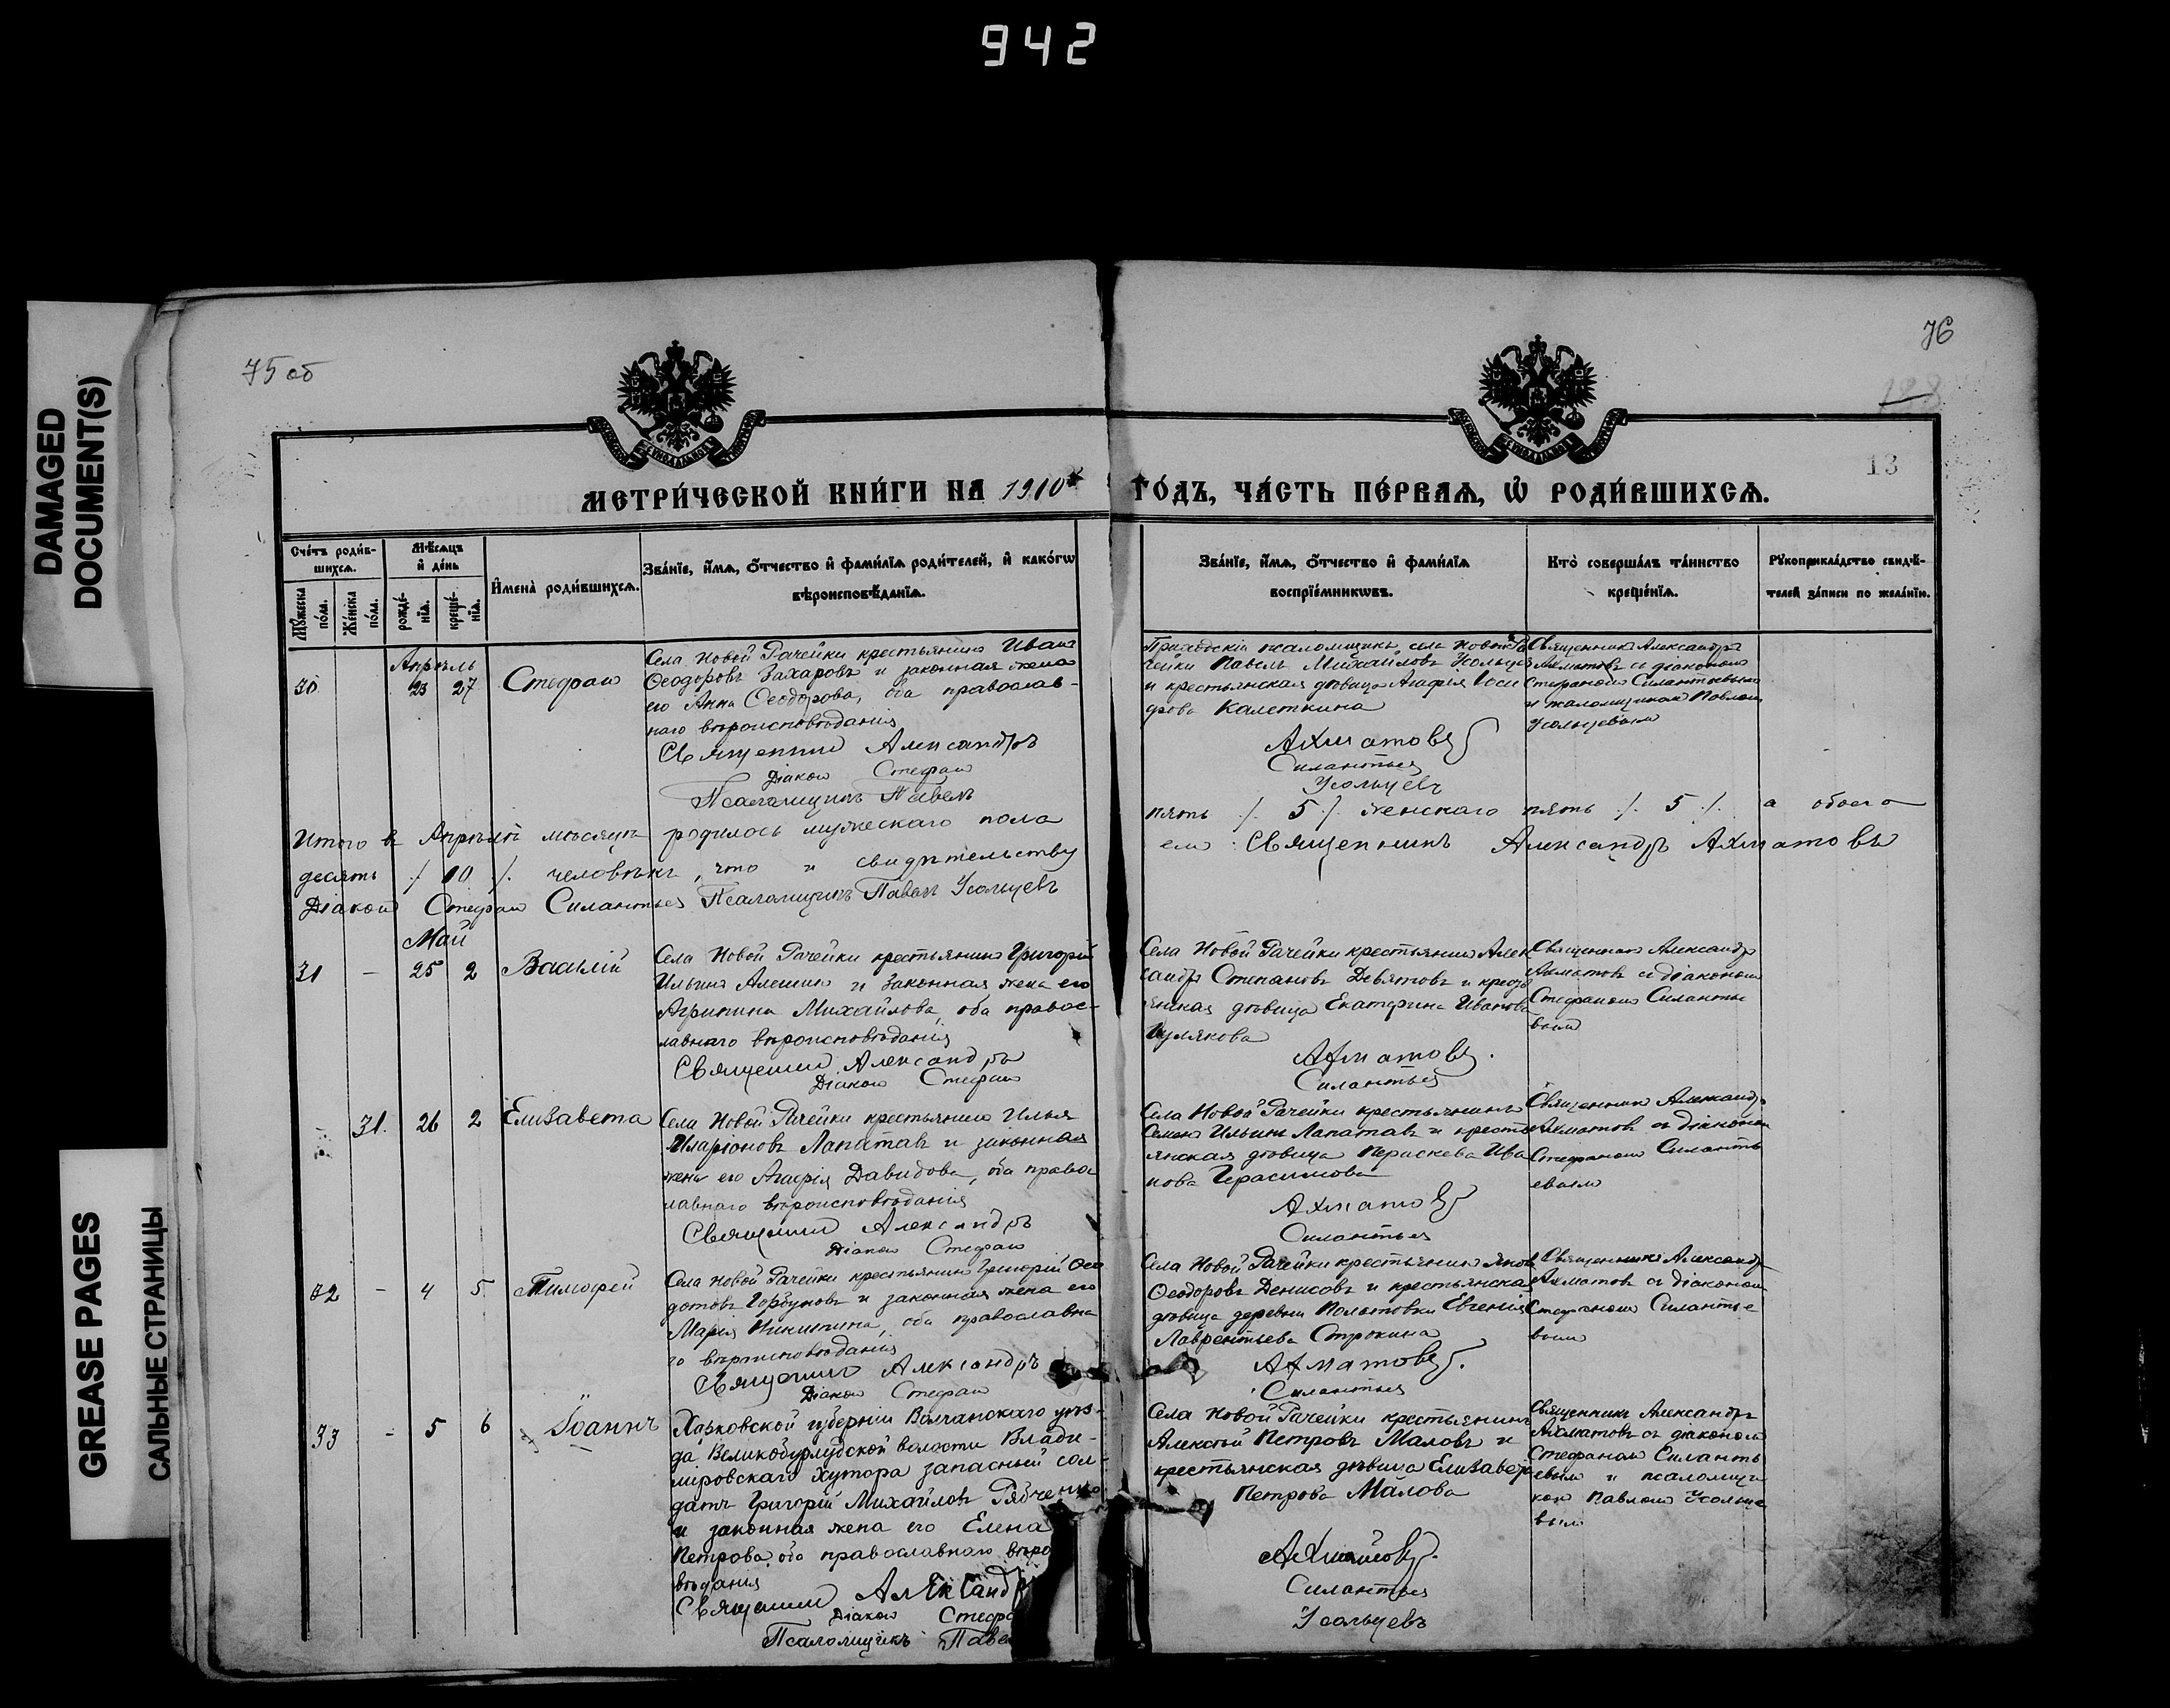 942
DAMAGED
DOCUMENT(S)
GREASE PAGES
САЛЬНЫЕ СТРАНИЦЫ
75 об
76
128
13
МЕТРИ́ЧЕСКОЙ КНИ́ГИ НА 1910
ГО́ДЪ, ЧА́СТЬ ПЕ́РВАѦ, Ѡ҆ РОДИ́ВШИХСѦ.
Сче́тъ роди́в-
шихсѧ.
Мꙋ́жеска
по́ла.
Же́нска
по́ла.
Мѣ́сѧцъ
и҆ де́нь
рожде́-
нїѧ.
креще́-
нїѧ.
И҆мена̀ роди́вшихсѧ.
Зва́нїе, и҆́мѧ, ѻ҆́тчество и҆ фами́лїѧ роди́телей, и҆ како́гѡ
вѣроисповѣ́данїѧ.
Зва́нїе, и҆́мѧ, ѻ҆́тчество и҆ фами́лїѧ
воспрїе́мникѡвъ.
Кто̀ соверша́лъ та́инство
креще́нїѧ.
Рꙋкоприкла́дство свидѣ́-
телей за́писи по жела́нїю.
Апрѣль
30
23 27
Стефанъ
Села Новой Рачейки крестьянинъ Иванъ
Ѳеодоровъ Захаровъ и законная жена
его Анна Ѳеодорова, оба православ-
наго вѣроисповѣданія
Священникъ Александръ
Діаконъ Стефанъ
Псаломщикъ Павелъ
Приходскій псаломщикъ села Новой Ра
чейки Павелъ Михайловъ Усольцев
и крестьянская дѣвица Агафія
Калеткина
Ахматовъ
Силантьев
Усольцевъ
Священникъ Александръ
Ахматовъ съ діакономъ
Стефаномъ Силантьевымъ
и псаломщикомъ Павломъ
Усольцевымъ
Итого въ Апрѣлѣ мѣсяцѣ родилось мужескаго пола
пять ./. 5 ./. женскаго пять ./. 5 ./. а обоего
десять ./. 10 ./. человѣкъ, что и свидѣтельству
ем Священникъ Александръ Ахматовъ
Діаконъ Стефанъ Силантьев Псаломщикъ Павелъ Усольцевъ
Май
31 - 25 2
Василій
Села Новой Рачейки крестьянинъ Григорій
Ильинъ Алешин и законная жена его
Агрипина Михайлова, оба правос-
лавнаго вѣроисповѣданія
Священникъ Александръ
Діаконъ Стефанъ
Села Новой Рачейки крестьянинъ Алек
сандръ Степановъ Девятовъ и крест
янская дѣвица Екатерина Иванова
Ахматовъ.
Силантьев
Священникъ Александръ
Ахматовъ съ діакономъ
Стефаномъ Силантье
вымъ
31. 26 2
Елизавета
Села Новой Рачейки крестьянинъ Илья
Иларіоновъ Лапатавъ и законная
жена его Агафія Давидова, оба правос
лавнаго вѣроисповѣданія
Священникъ Александръ
Діаконъ Стефанъ
Села Новой Рачейки крестьянинъ
Семенъ Ильинъ Лапатавъ и кресть
янская дѣвица Параскева Ива
нова Герасимова
Ахматовъ
Силантьев
Священникъ Александръ
Ахматовъ съ діакономъ
Стефаномъ Силанть
евымъ
32 - 4 5
Тимофей
Села Новой Рачейки крестьянинъ Григорій Ѳео
дотовъ Горбуновъ и законная жена его
Марія Никитина, оба православна
го вѣроисповѣданія
Священникъ Александръ
Діаконъ Стефанъ
Села Новой Рачейки крестьянинъ Яков
Ѳеодоровъ Денисовъ и крестьянская
дѣвица деревни Евгенія
Лаврентьева Строкина
Ахматовъ.
Силантьев
Священникъ Александръ
Ахматовъ съ діакономъ
Стефаномъ Силантье
вымъ
33 - 5 6
Іоаннъ
Харьковской губерніи Волчанскаго уѣз-
да Великобурлудской волости Влади-
міровскаго хутора запасный сол-
датъ Григорій Михайловъ Рябченко
и законная жена его Елена
Петрова, оба православнаго вѣро
вѣданія
Священникъ Александръ
Діаконъ Стефа
Псаломщикъ Паве
Села Новой Рачейки крестьянинъ
Алексѣй Петровъ Маловъ и
крестьянская дѣвица Елизавета
Петрова Малова
Ахматовъ.
Силантьев
Усольцевъ
Священникъ Александръ
Ахматовъ съ діакономъ
Стефаномъ Силанть
евымъ и псаломщи
комъ Павломъ Усольце
вымъ